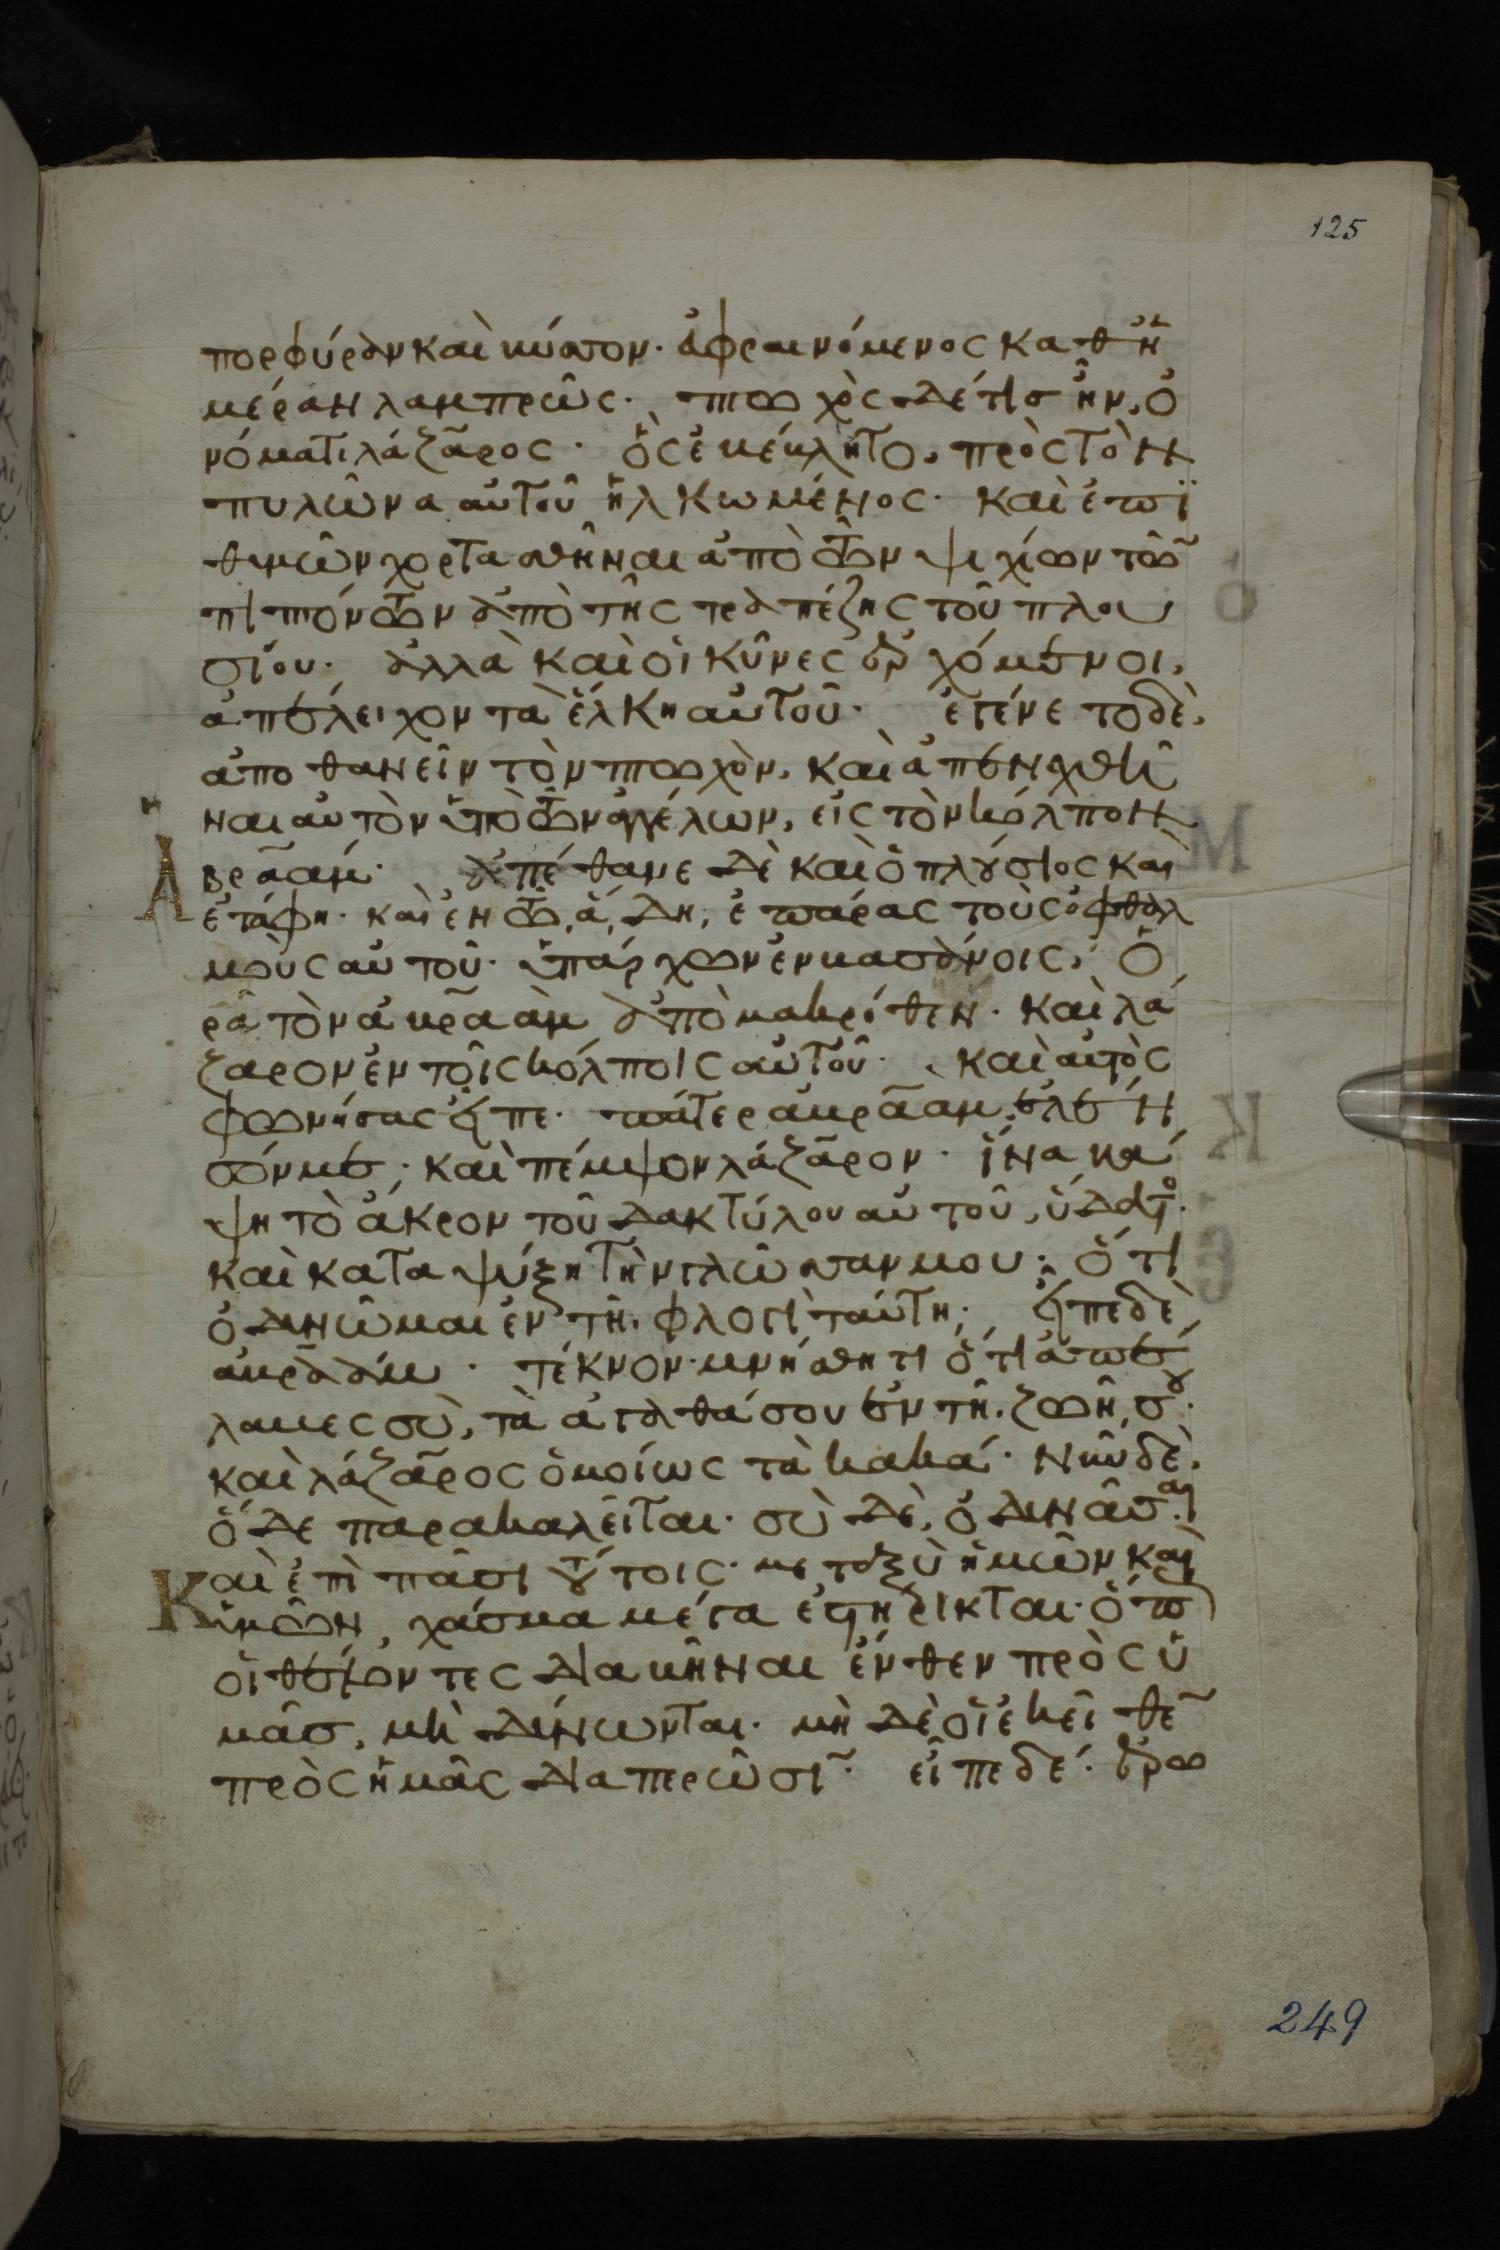 125
πορφύραν καὶ βύσσον· εὐφραινόμενος καθ' ἡ
μέραν λαμπρῶς· πτωχὸς δέ τις ἦν, ὀ
νόματι λάζαρος· ὃς ἐβέβλητο, πρὸς τὸν
πυλῶνα αὐτοῦ ἡλκωμένος· καὶ ἐπι
θυμῶν χορτασθῆναι ἀπὸ τῶν ψιχίων τῶ̄
πιπτόντων ἀπὸ τῆς τραπέζης τοῦ πλου
σίου· ἀλλὰ καὶ οἱ κύνες ἐρχόμενοι,
ἀπέλειχον τὰ ἕλκη αὐτοῦ· ἐγένετο δὲ,
ἀποθανεῖν τὸν πτωχὸν, καὶ ἀπενεχθῆ
ναι αὐτὸν ὑπὸ τῶν ἀγγέλων, εἰς τὸν κόλπον
Αβραάμ· ἀπέθανε δὲ καὶ ὁ πλούσιος καὶ
ἐτάφη· καὶ ἐν τῶ, ἅδη, ἐπάρας τοὺς ὀφθαλ
μοὺς αὐτοῦ· ὑπάρχων ἐν βασάνοις, ὁ
ρᾶ τὸν ἀβραὰμ ἀπὸ μακρόθεν· καὶ λά
ζαρον ἐν τοῖς κόλποις αὐτοῦ· καὶ αὐτὸς
φωνήσας εἶπε· πάτερ ἀβραάμ, ἐλέη
σόν με, καὶ πέμψον λάζαρον· ἵνα βά
ψη τὸ ἄκρον τοῦ δακτύλου αὐτοῦ, ὕδατος·
καὶ καταψύξη τὴν γλῶσσαν μου, ὅτι
ὀδυνῶμαι ἐν τῆ φλογὶ ταύτη, εἶπε δὲ
ἀβραάμ· τέκνον· μνήσθητι ὅτι ἀπέ
λαβες σὺ, τὰ ἀγαθά σου ἐν τῆ ζωῆ σου·
καὶ λάζαρος ὁμοίως τὰ κακά· νῦν δὲ,
ὅδε παρακαλεῖται· σὺ δὲ, ὀδυνᾶσαι
Καὶ ἐπὶ πᾶσι τούτοις· μεταξὺ ἡμῶν καὶ
ὑμῶν, χάσμα μέγα ἐστήρικται· ὅπως
οἱ θέλοντες διαβῆναι ἔνθεν πρὸς ὑ
μᾶς, μὴ δύνωνται· μὴ δὲ οἱ ἐκεῖθε̄
πρὸς ἡμᾶς διαπερῶσῖ· εἶπε δέ· ἐρω
249